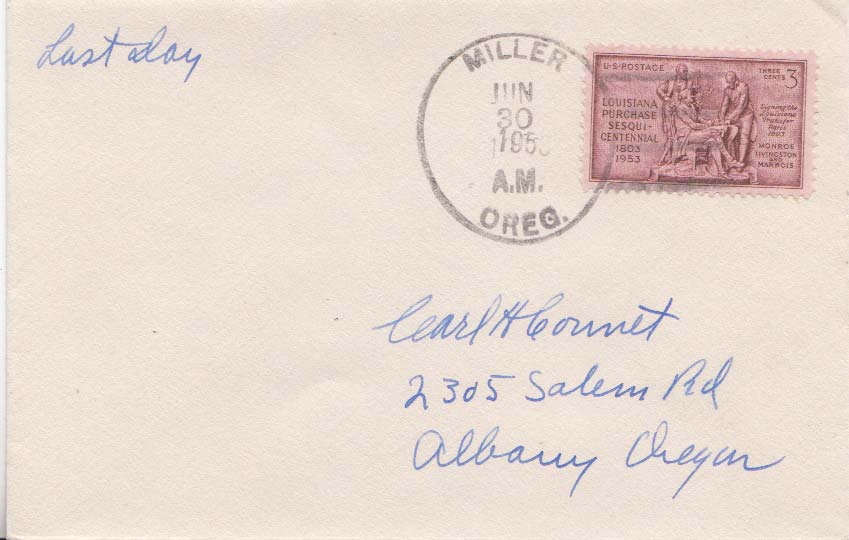 Last day
MILLER
JUN
30
1953
A.M.
OREG.
U.S. POSTAGE
THREE CENTS 3
LOUISIANA
PURCHASE
SESQUI-
CENTENNIAL
1803
1953
Signing the
Louisiana
Transfer
Paris
1803
MONROE
LIVINGSTON
AND
MARBOIS
Carl H
2305 Salem Rd
Albany Oregon